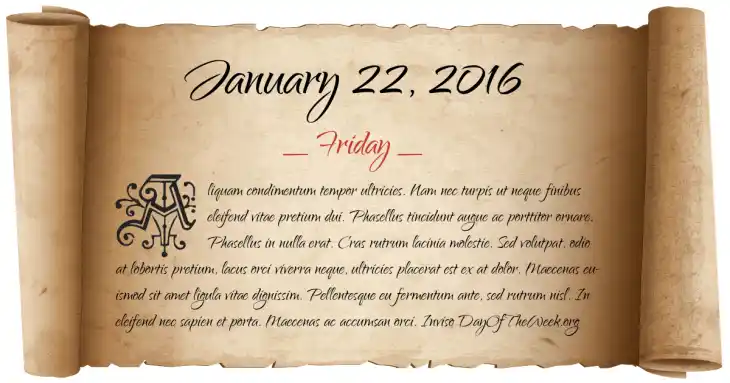 January 22, 2016
_ Friday _
Aliquam condimentum tempor ultricies. Nam nec turpis ut neque finibus
eleifend vitae pretium dui. Phasellus tincidunt augue ac porttitor ornare.
Phasellus in nulla erat. Cras rutrum lacinia molestie. Sed volutpat, odio
at lobortis pretium, lacus orci viverra neque, ultricies placerat est ex at dolor. Maecenas eu-
ismod sit amet ligula vitae dignissim. Pellentesque eu fermentum ante, sed rutrum nisl. In
eleifend nec sapien et porta. Maecenas ac accumsan orci. Inviso DayOfTheWeek.org